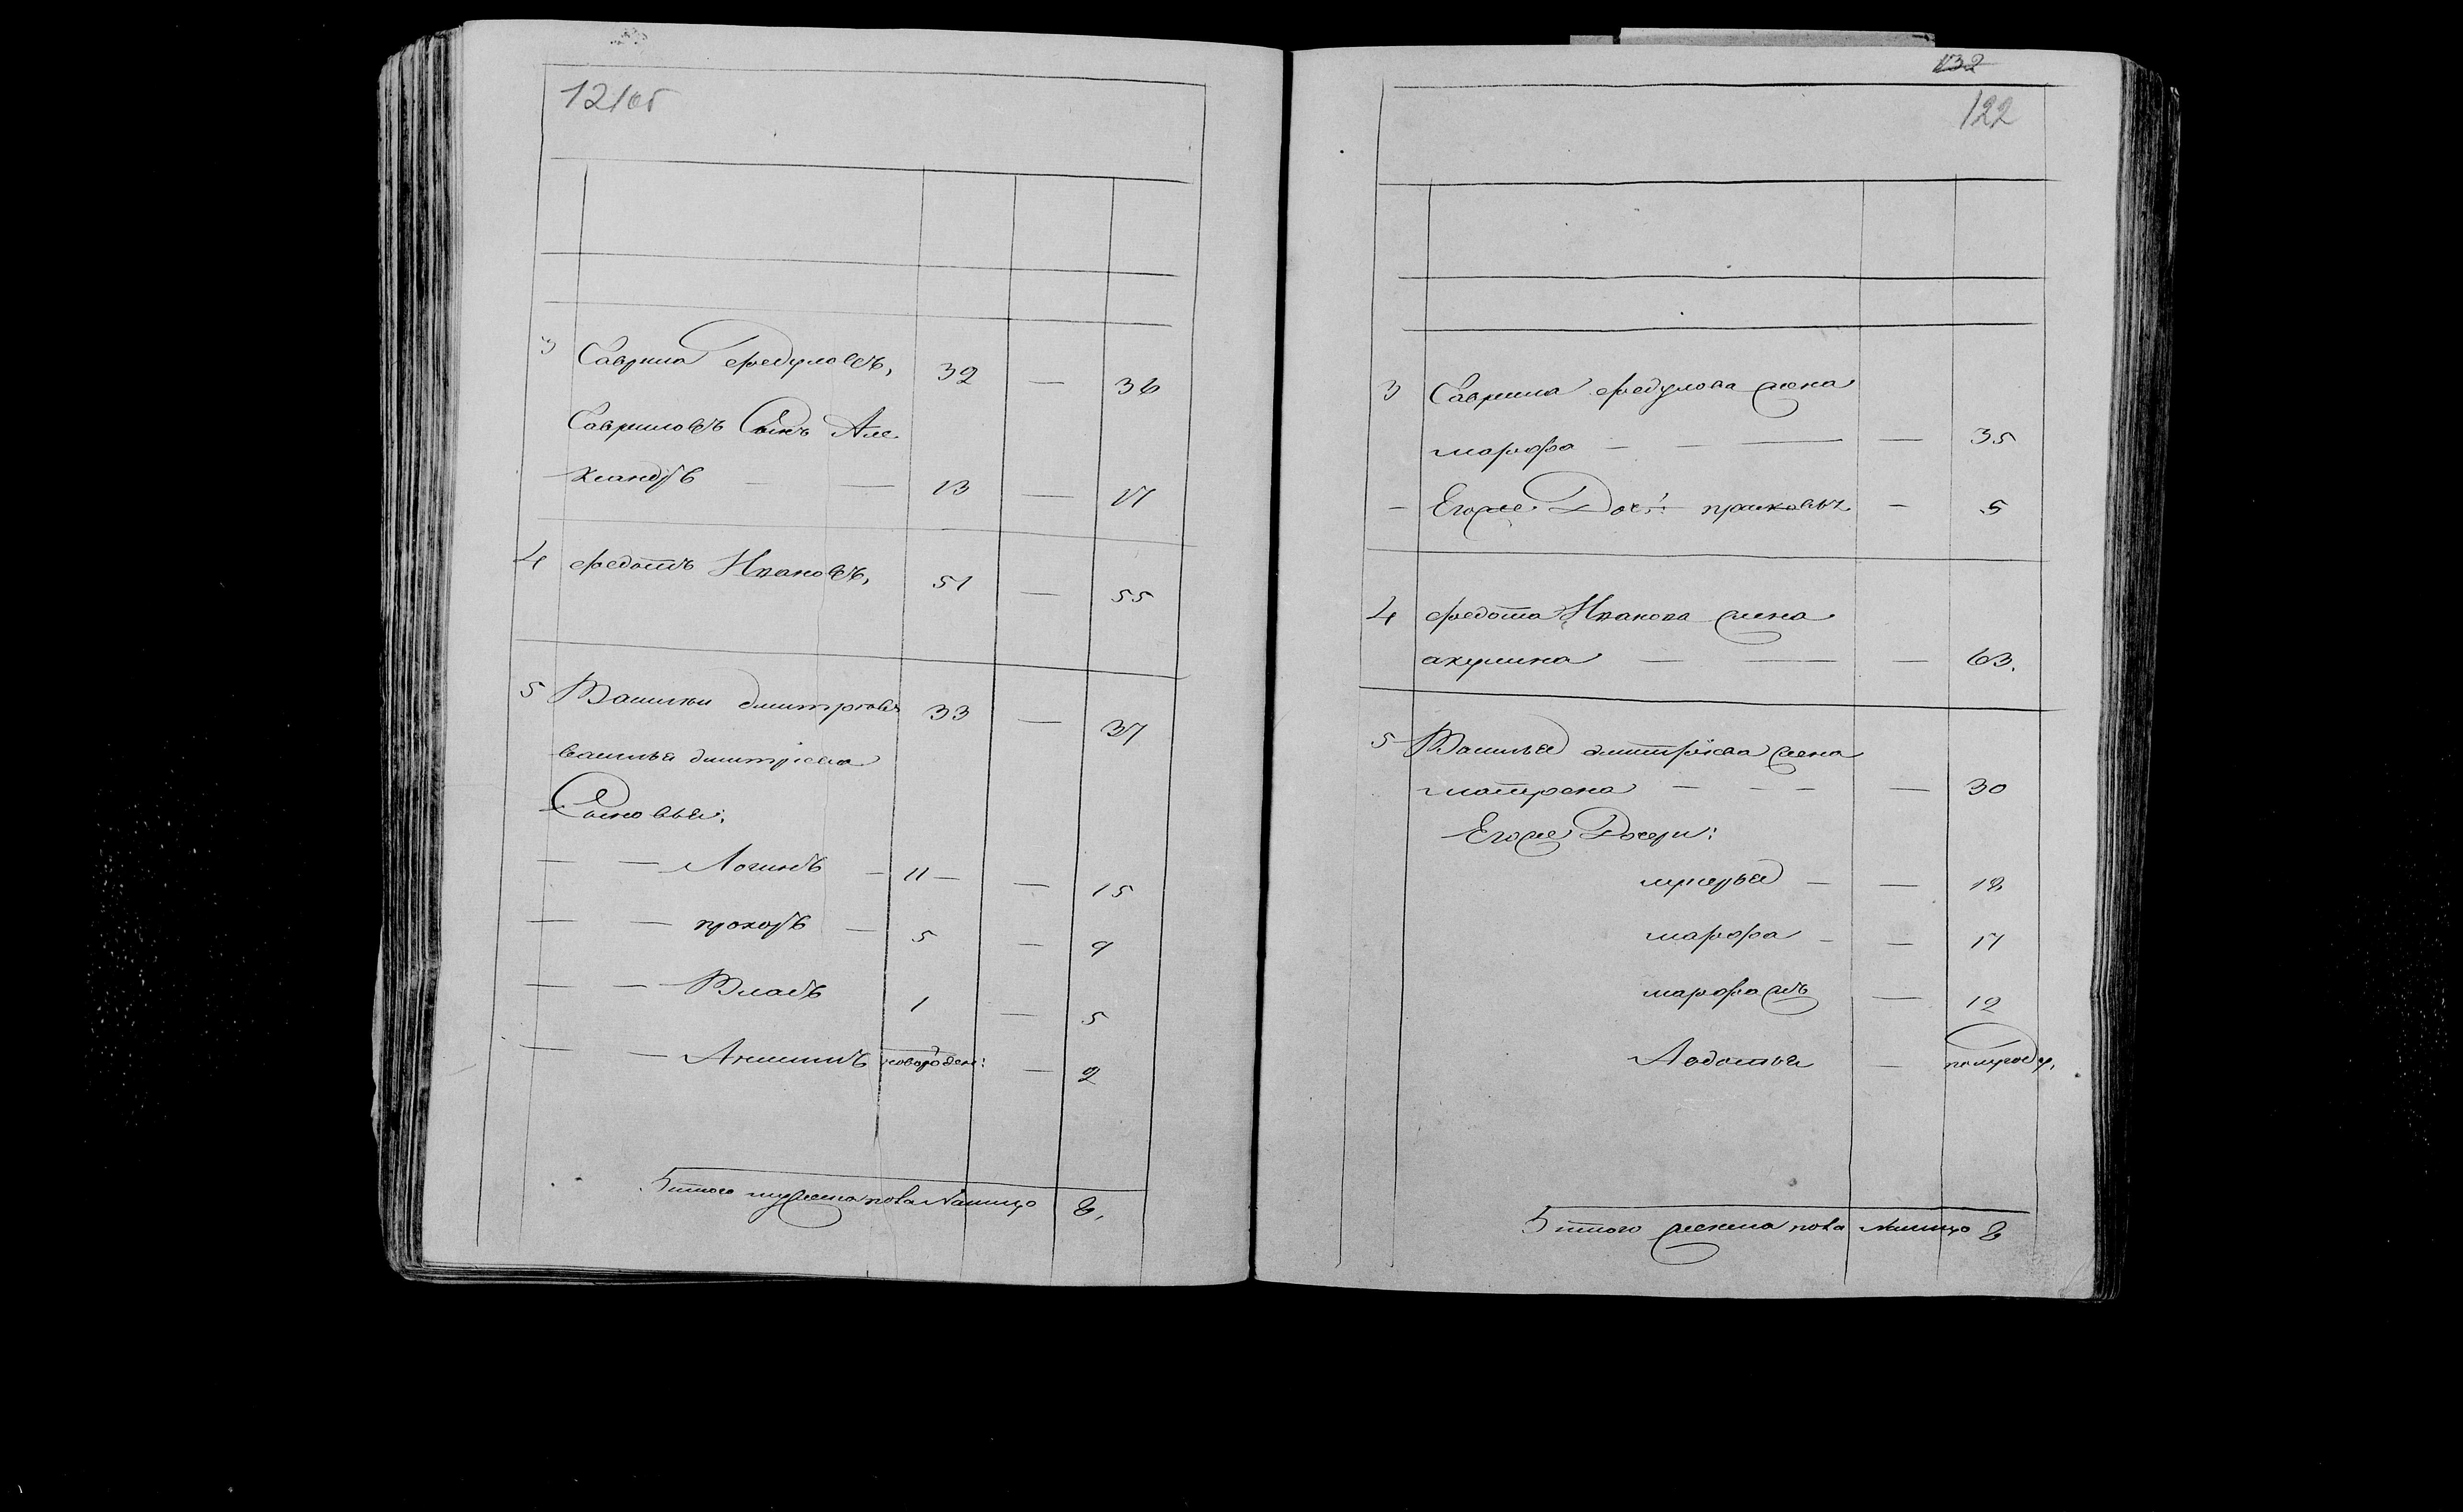 121об
3 Гаврила Федуловъ, 32 — 36
Гавриловъ Сынъ Але
ксандръ — — 13 — 17
4 Федотъ Ивановъ, 51 — 55
5 Василий дмитриевъ 33 — 37
василья дмитріева
Сыновья:
— — Логинъ — 11 — — 15
— — прохоръ — 5 — 9
— — Власъ 1 — 5
— — Анисимъ новорожден: — 2
Итого мужеска пола налицо 8.
132
122
3 Гаврила Федулова жена
марфа — — — — 35
— Егоже Дочь: прасковья — 5
4 Федота Иванова жена
акулина — — — 63.
5 Василья дмитріева жена
матрена — — — — 30
Егоже Дочери:
лукерья — — 18
марфа — — 17
марфа жъ — 12
Авдотья — полугоду.
Итого женска пола налицо 8